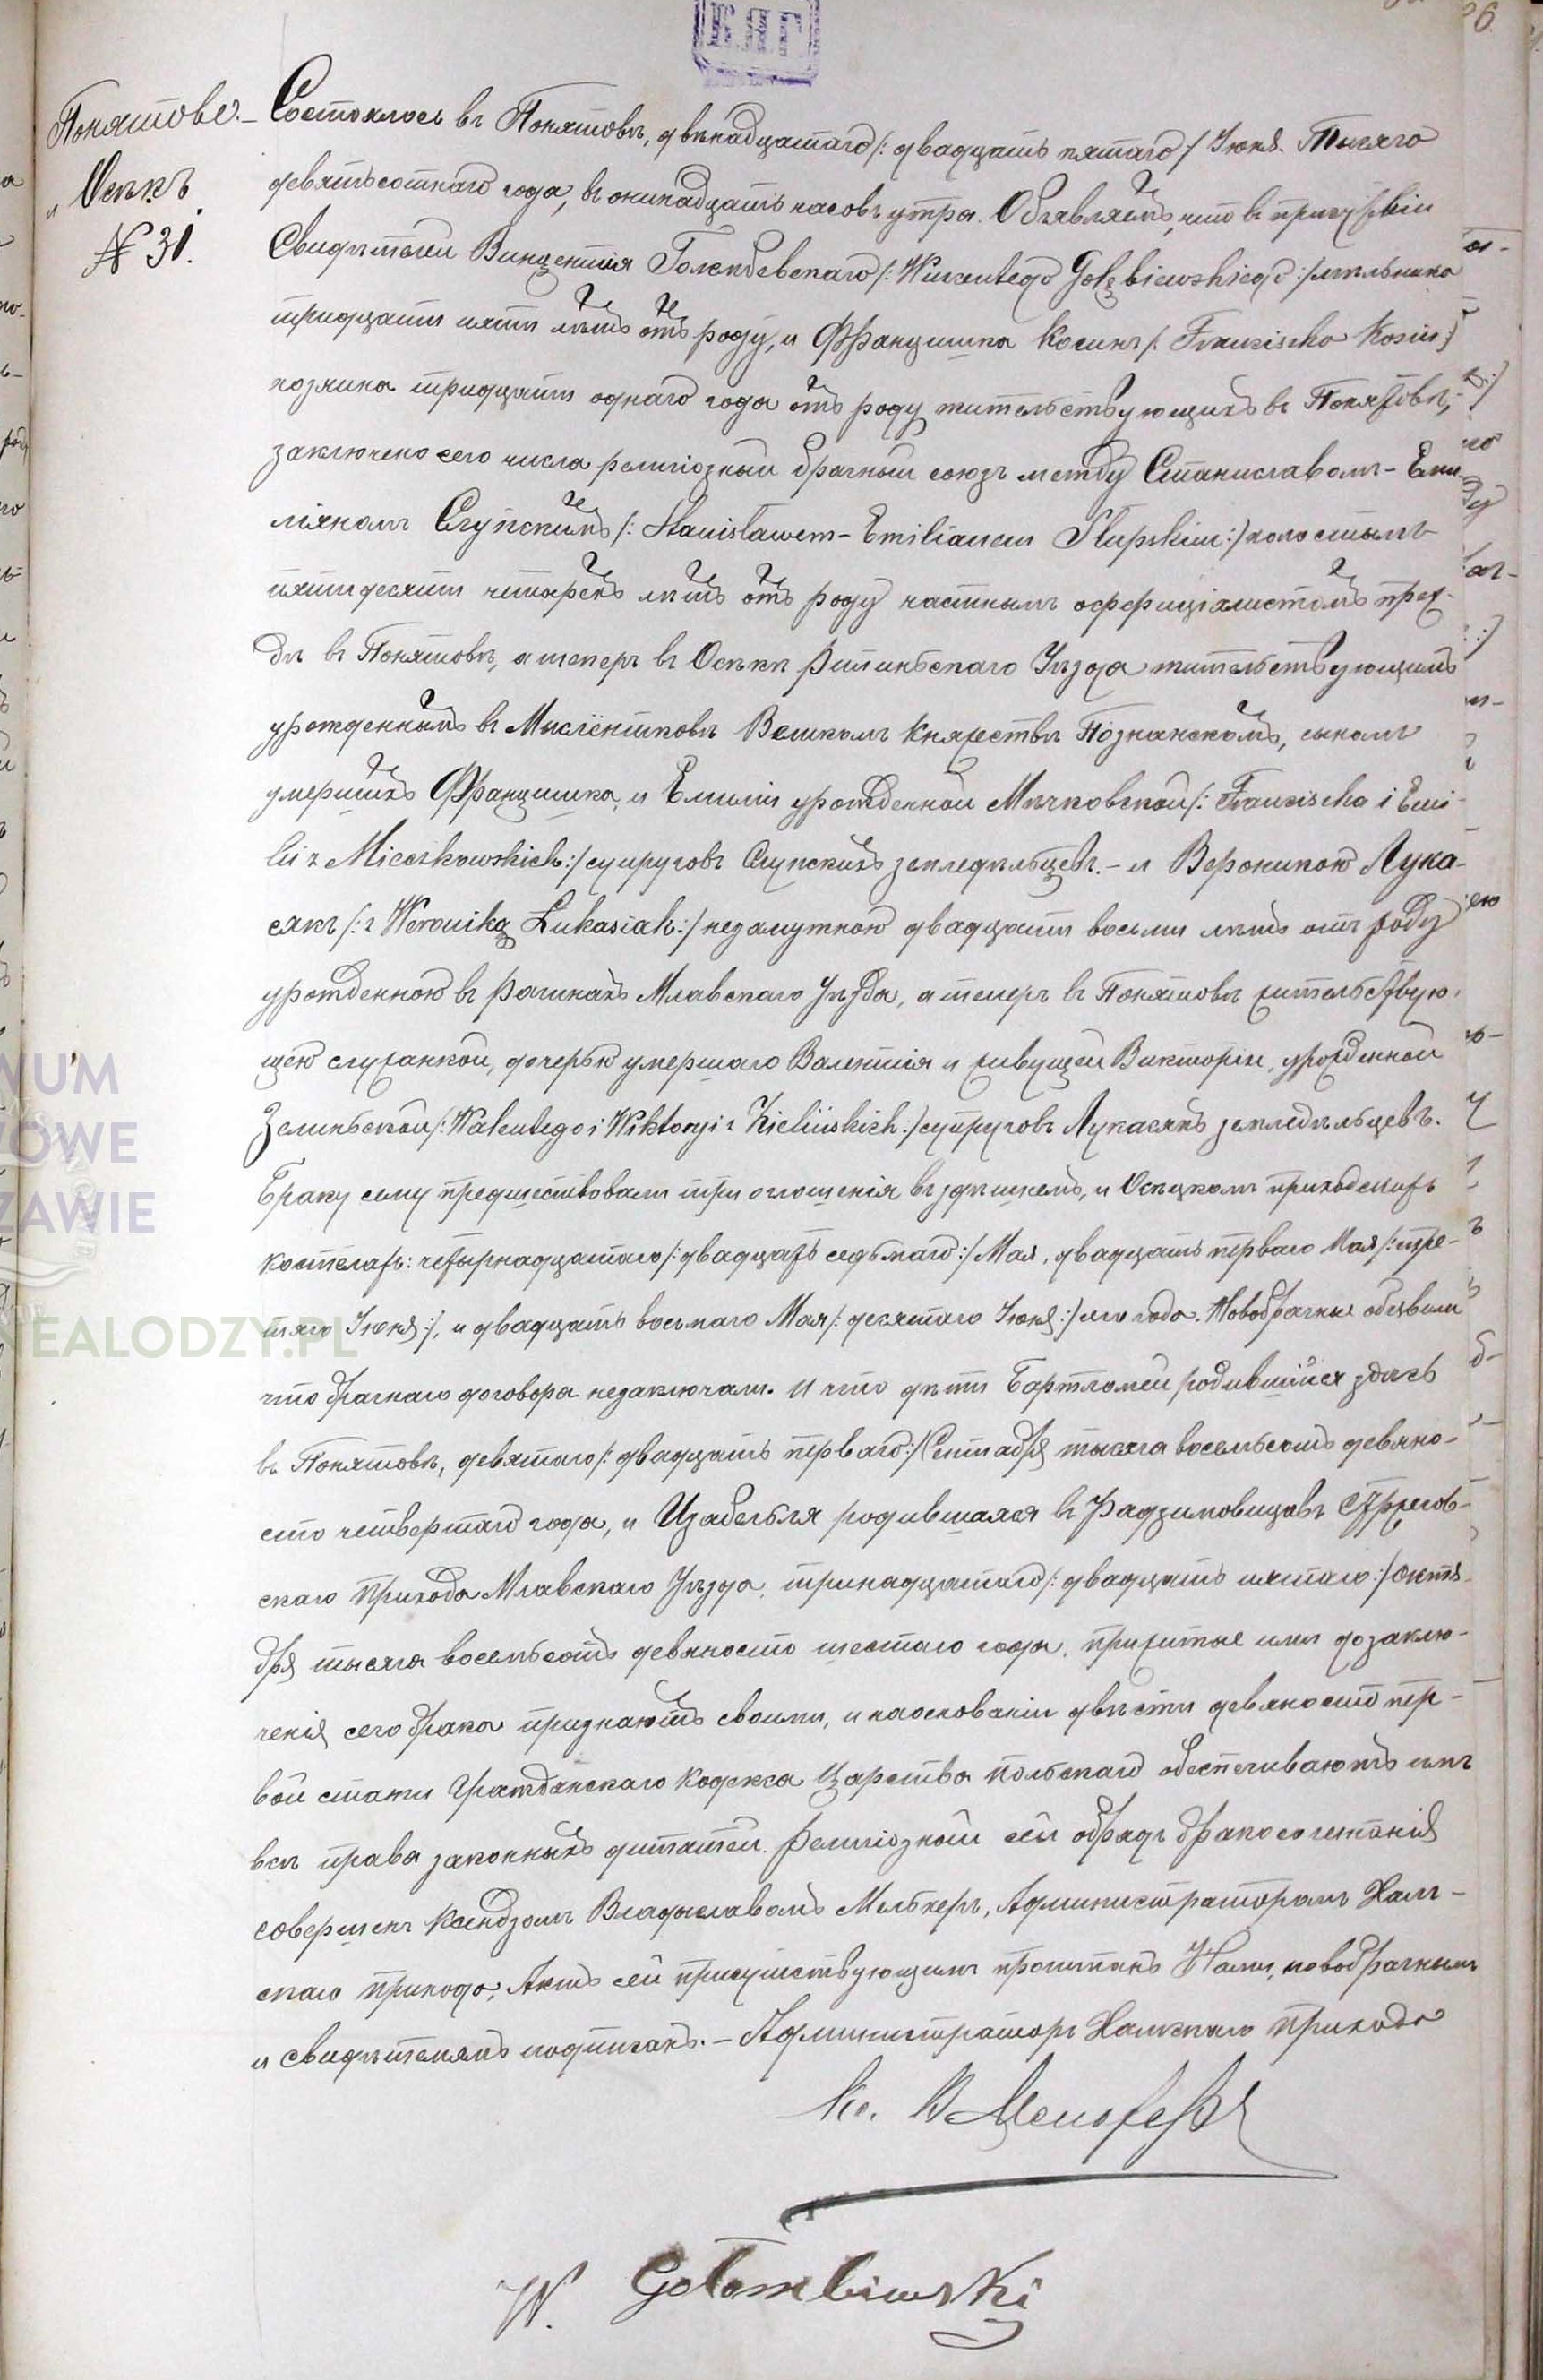 Понятово –
и Осѣкъ
№ 31.
Состоялось въ Понятовѣ, двѣнадцатаго /: двадцать пятаго :/ Іюня Тысяча
девятьсотнаго года, въ одинадцать часовъ утра. Объявляемъ, что въ присутствіи
Свидѣтелей Винцентія Голембевскаго /: Wincentego Gołębiewskiego :/ мельника
тридцати пяти лѣтъ отъ роду, и Францишка Косинъ /: Franciszka Kosin :/
хозяина тридцати однаго года отъ роду жительствующихъ въ Понятовѣ,
заключено сего числа религіозный брачный союзъ между Станиславомъ – Еми-
ліяномъ Слупскимъ /: Stanisławem – Emilianem Słupskim :/ холостымъ
пятидесяти четырехъ лѣтъ отъ роду частнымъ оффиціялистомъ преж-
дѣ въ Понятовѣ, а теперь въ Осѣкѣ Рыпинскаго Уѣзда жительствующимъ
урожденнымъ въ Мыслентковѣ Великомъ Княжествѣ Познанскомъ, сыномъ
умершихъ Францишка, и Емиліи урожденной Мѣчковской /: Franciszka i Emi-
lii z Mieczkowskich :/ супруговъ Слупскихъ земледѣльцевъ. – и Вероникою Лука-
сякъ /: z Weroniką Łukasiak :/ незамужною двадцати восьми лѣтъ отъ роду
урожденною въ Рачинахъ Млавскаго Уѣзда, а теперь въ Понятовѣ жительствую-
щею служанкой, дочерью умершаго Валентія и живущей Викторіи, урожденной
Зелинской /: Walentego i Wiktoryi z Zielińskich :/ супруговъ Лукасякъ земледѣльцевъ.
Браку сему предшествовали три оглошенія въ здѣшнемъ, и Осѣцкомъ приходскихъ
костелахъ: четырнадцатаго /: двадцать седьмаго :/ Мая, двадцать перваго Мая /: тре-
тяго Іюня :/, и двадцать восьмаго Мая /: десятаго Іюня :/ сего года. Новобрачные объявили
что брачнаго договора незаключали. И что дѣти Бартломей родившійся здѣсь
въ Понятовѣ, девятаго /: двадцать перваго :/ Сентября тысяча восемьсотъ девяно-
сто четвертаго года, и Изабелля родившаяся въ Радзимовицахъ Стрегов-
скаго Прихода Млавскаго Уѣзда, тринадцатаго /: двадцать пятаго :/ Октя-
бря тысяча восемьсотъ девяносто шестаго года, прижитые ими до заклю-
ченія сего брака признаютъ своими, и наоснованіи двѣсти девяносто пер-
вой статьи Гражданскаго Кодекса Царства Польскаго обеспечиваютъ имъ
всѣ права законныхъ дитятей. Религіозный сей обрядъ бракосочетанія
совершенъ Ксендзомъ Владыславомъ Мельхеръ, Администраторомъ
скаго прихода. Актъ сей присутствующимъ прочитанъ Нами, новобрачнымъ
и свидѣтелямъ подписанъ. – Администраторъ прихода
Кс. В Мельхеръ
W. Gołembiewski